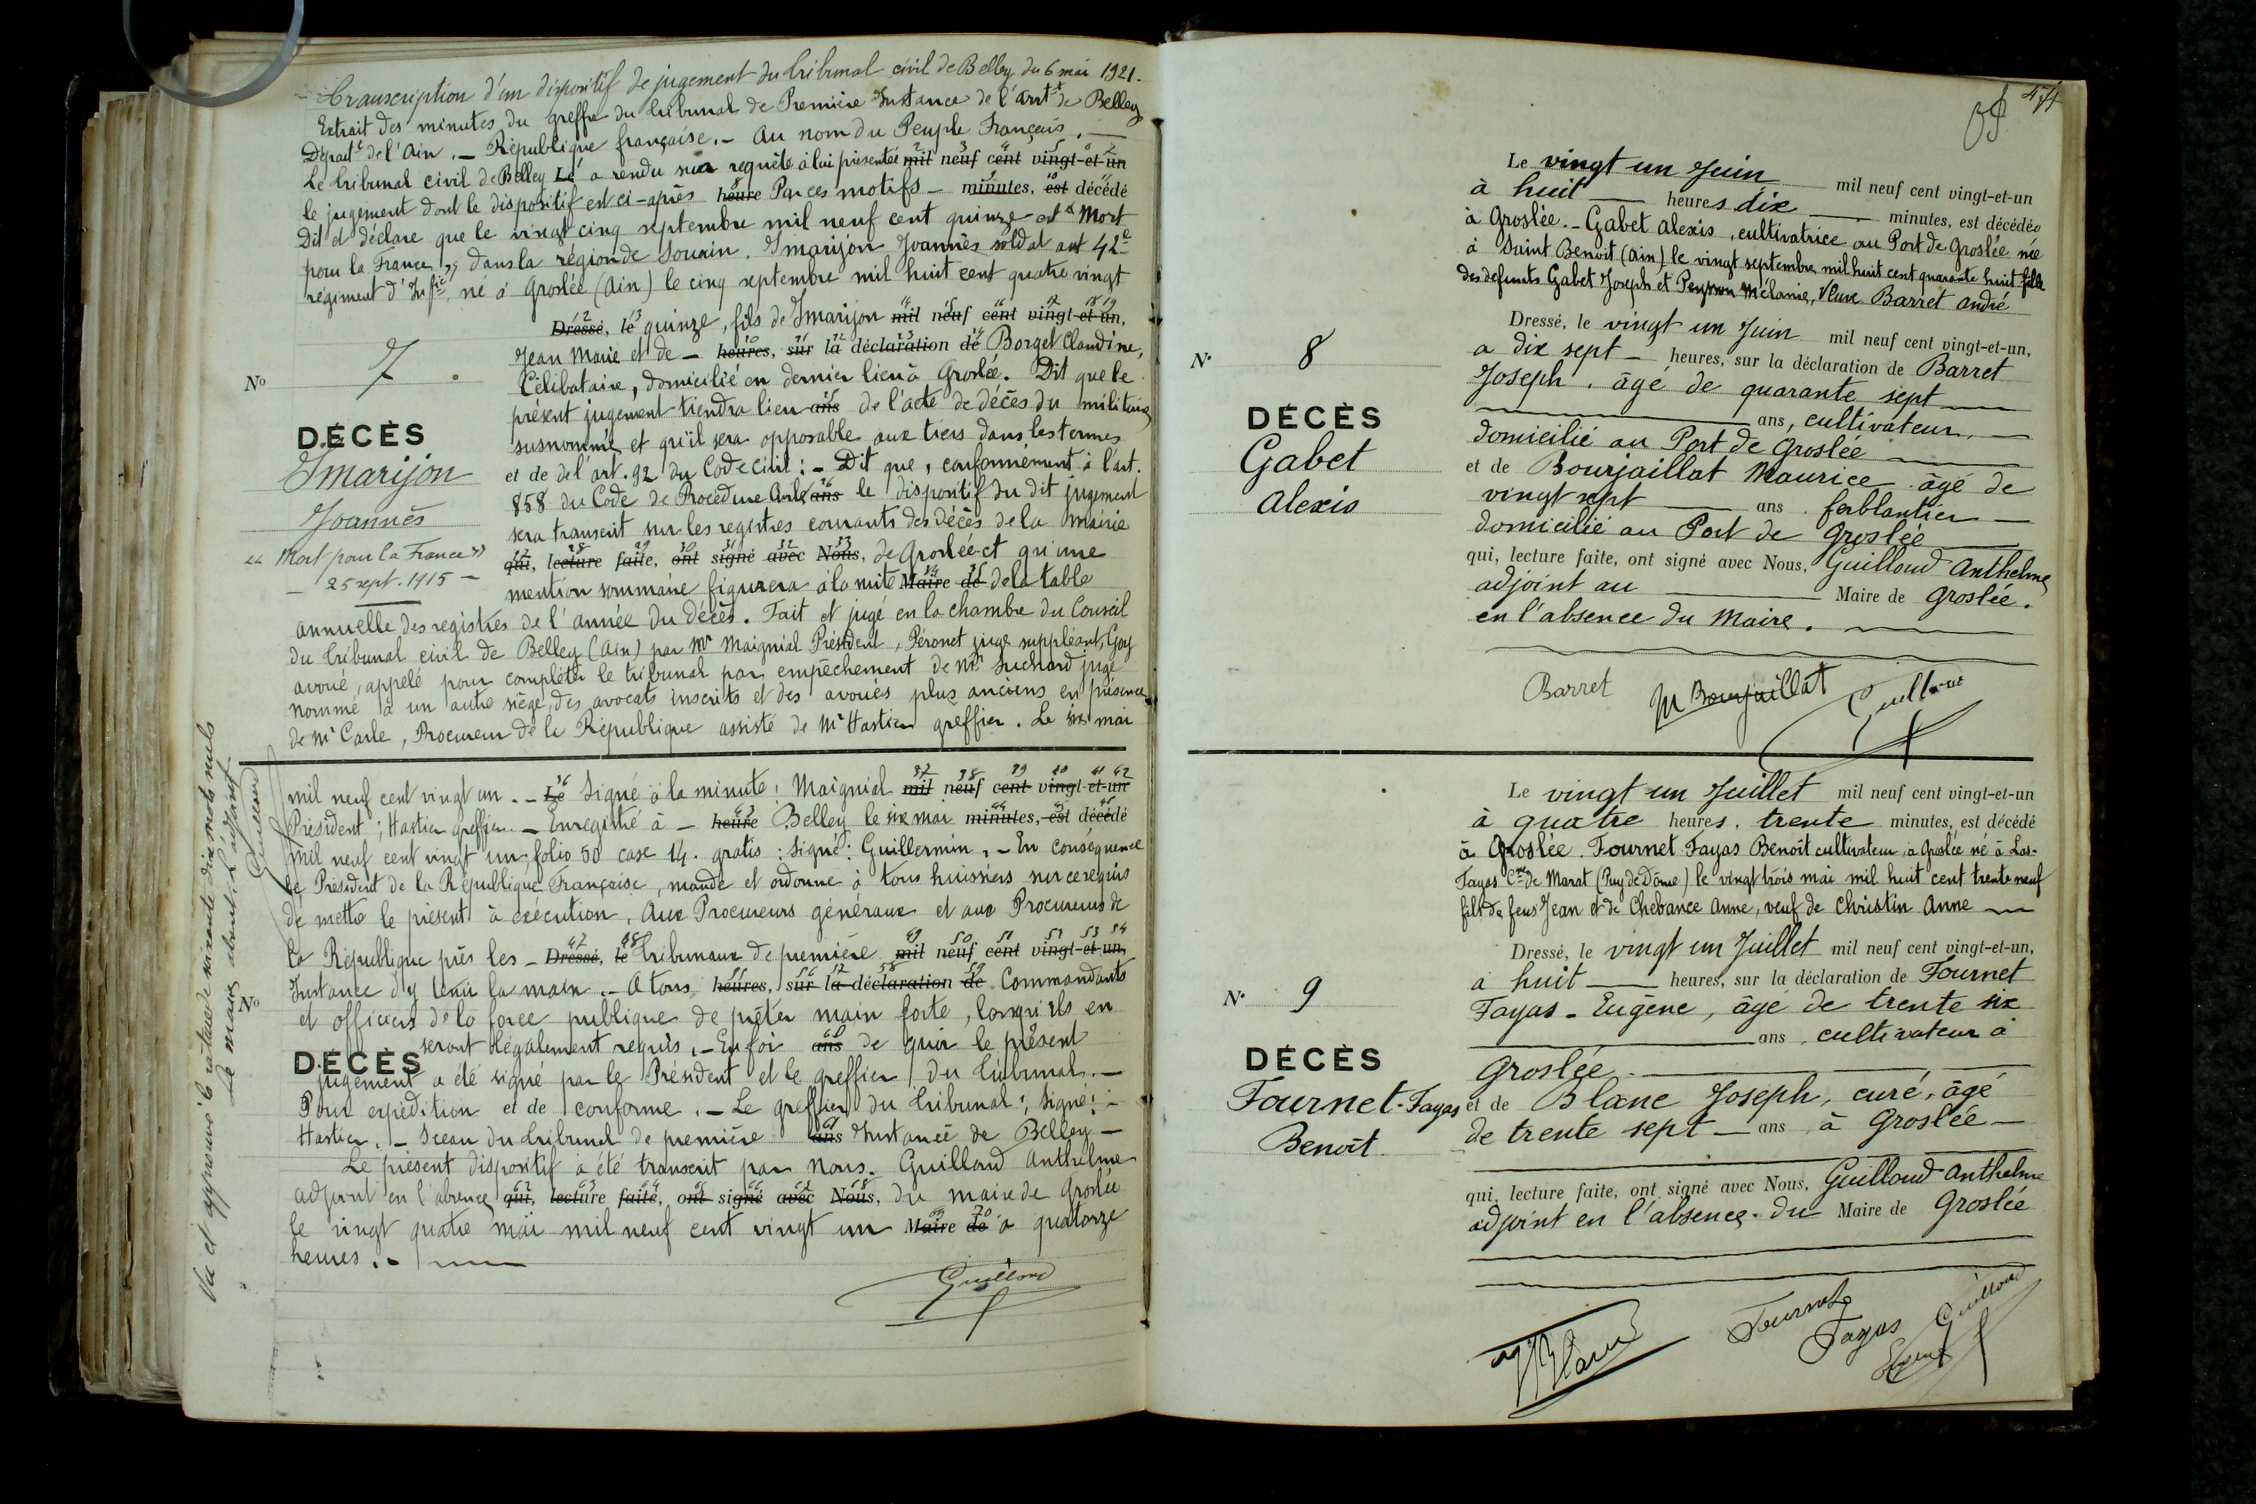 Transcription d'un dispositif de jugement du tribunal civil de Belley du 6 mai 1921.
Extrait des minutes du greffe du tribunal de Première Instance de l'arrt de Belley
Départt de l'Ain. — République française. — Au nom du Peuple Français. —
Le tribunal civil de Belley Le a rendu sur requête à lui présentée mil neuf cent vingt-et-un
le jugement dont le dispositif est ci-après heure Par ces motifs — minutes, est décédé
Dit et déclare que le vingt cinq septembre mil neuf cent quinze est "Mort
pour la France", dans la région de Souain. Imarijon Joannès soldat au 42e
régiment d'Inftie, né à Groslée (Ain) le cinq septembre mil huit cent quatre vingt
Dressé, le quinze, fils de Imarijon mil neuf cent vingt-et-un,
Jean Marie et de — heures, sur la déclaration de Borget Claudine,
Célibataire, domicilié en dernier lieu à Groslée. Dit que le
présent jugement tiendra lieu ans de l'acte de décès du militaire
susnommé et qu'il sera opposable aux tiers dans les termes
et de del'art. 92 du Code civil : — Dit que, conformément à l'art.
858 du Code de Procédure Civile ans le dispositif du dit jugement
sera transcrit sur les registres courants des décès de la Mairie
qui, lecture faite, ont signé avec Nous, de Groslée et qu'une
mention sommaire figurera à la suite Maire de de la table
annuelle des registres de l'année du décès. Fait et jugé en la chambre du Conseil
du tribunal civil de Belley (Ain) par Mr Maignial Président, Péronet juge suppléant, Goy
avoué, appelé pour compléter le tribunal par empêchement de Mr Suchard juge
nommé à un autre siège, des avocats inscrits et des avoués plus anciens en présence
de Mr Carle, Procureur de la République assisté de Mr Hastier greffier. Le six mai
No 7
DÉCÈS
Imarijon
Joannès
"Mort pour la France"
— 25 sept. 1915 —
mil neuf cent vingt un. — Le Signé à la minute : Maignial mil neuf cent vingt-et-un
Président ; Hastier greffier. — Enregistré à — heure Belley le six mai minutes, est décédé
mil neuf cent vingt un folio 50 case 14. gratis : signé : Guillermin. — En conséquence
le Président de la République Française, mande et ordonne à tous huissiers sur ce requis
de mettre le présent à exécution, Aux Procureurs généraux et aux Procureurs de
la République près les — Dressé, le tribunaux de première mil neuf cent vingt-et-un,
Instance d'y tenir la main. — A tous heures, sur la déclaration de Commandants
et officiers de la force publique de prêter main forte, lorsqu'ils en
seront légalement requis. — En foi ans de quoi le présent
jugement a été signé par le Président et le greffier du tribunal. —
Pour expédition et de conforme. — Le greffier du tribunal ; signé : —
Hastier. — Sceau du tribunal de première ans Instance de Belley —
Le présent dispositif a été transcrit par nous. Guilloud Anthelme
adjoint en l'absence qui, lecture faite, ont signé avec Nous, du maire de Groslée
le vingt quatre mai mil neuf cent vingt un Maire de à quatorze
heures. —
Guilloud
No
DÉCÈS
Vu et approuvé la rature de soixante dix mots nuls
Le maire absent, L'adjoint
Guilloud
44
No 8
DÉCÈS
Gabet
Alexis
Le vingt un Juin mil neuf cent vingt-et-un
à huit — heures dix — minutes, est décédée
à Groslée. — Gabet Alexis, cultivatrice au Port de Groslée née
à Saint Benoît (Ain) le vingt septembre mil huit cent quarante huit fille
des defunts Gabet Joseph et Peysson Mélanie, Veuve Barret André
Dressé, le vingt un Juin mil neuf cent vingt-et-un,
a dix sept — heures, sur la déclaration de Barret
Joseph. âgé de quarante sept —
— ans, cultivateur, —
domicilié au Port de Groslée —
et de Bourjaillat Maurice âgé de
vingt sept — ans. ferblantier —
domicilié au Port de Groslée —
qui, lecture faite, ont signé avec Nous, Guilloud Anthelme
adjoint au — Maire de Groslée.
en l'absence du Maire. —
Barret M Bourjaillat Guilloud
No 9
DÉCÈS
Fournet-Fayas
Benoît
Le vingt un Juillet mil neuf cent vingt-et-un
à quatre heures. trente minutes, est décédé
à Groslée. Fournet-Fayas Benoît cultivateur à Groslée né à Las-
Fayas Cne de Marat (Puy de Dôme) le vingt trois mai mil huit cent trente neuf
fils de feus Jean et de Chebance Anne, veuf de Christin Anne —
Dressé, le vingt un Juillet mil neuf cent vingt-et-un,
à huit — heures, sur la déclaration de Fournet
Fayas - Eugène, âge de trente six
— ans, cultivateur à
Groslée. —
et de Blanc Joseph, curé, âgé
de trente sept — ans, à Groslée —
qui, lecture faite, ont signé avec Nous, Guilloud Anthelme
adjoint en l'absence. du Maire de Groslée
J Blanc Fournet
Fayas Guilloud